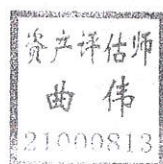 资产评估师
曲伟
21000813